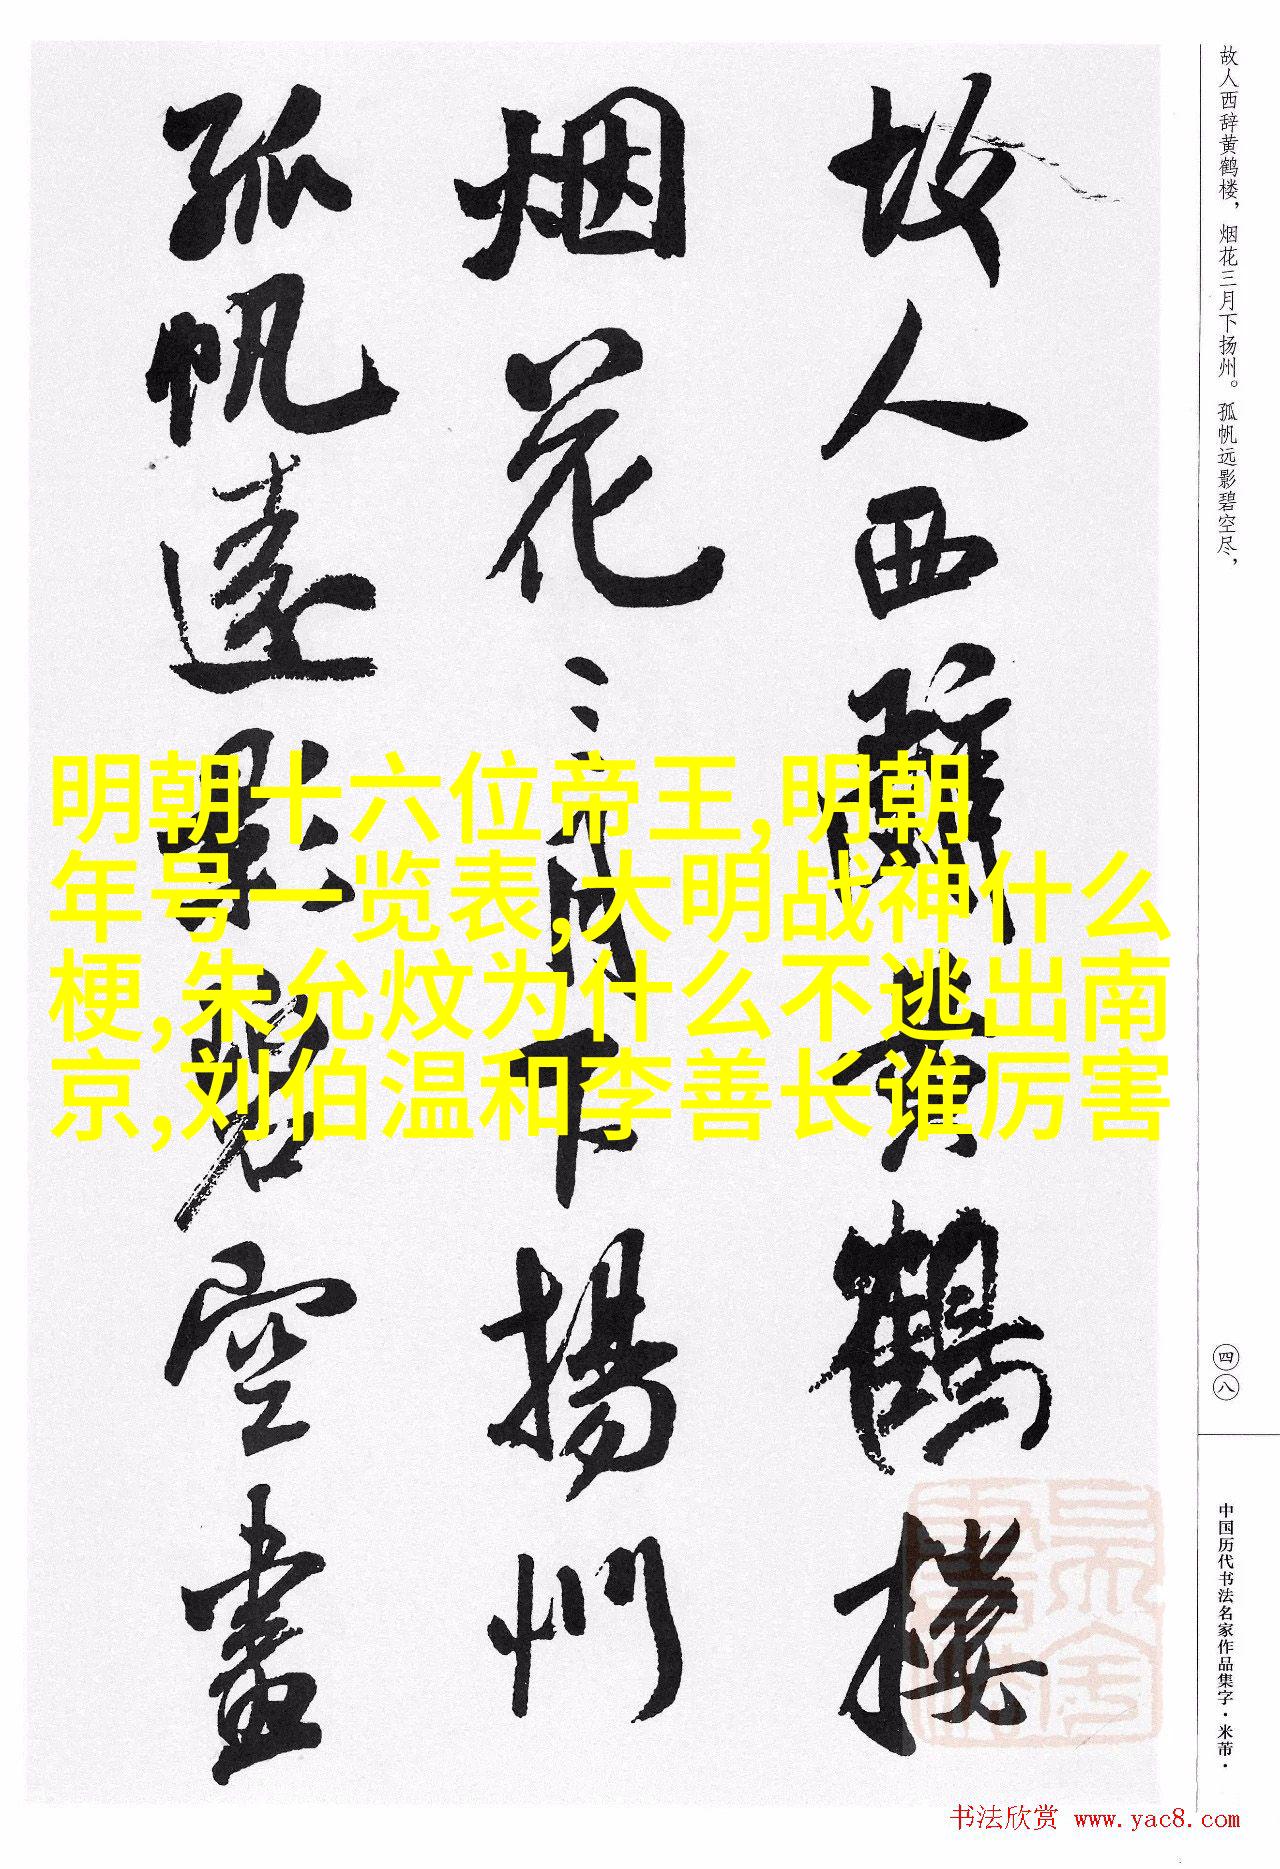 故人西辞黄鹤楼，烟花三月下扬州。孤帆远影碧空尽，
故人西辭黄鹤楼
烟花三月下揚州
孤帆遠影碧空盡
明朝十六位帝王,明朝
年号一览表,大明战神什么
梗,朱允炆为什么不逃出南
京,刘伯温和李善长谁厉害
四八
中国历代书法名家作品集字·米芾·
书法欣赏 www.yac8.com